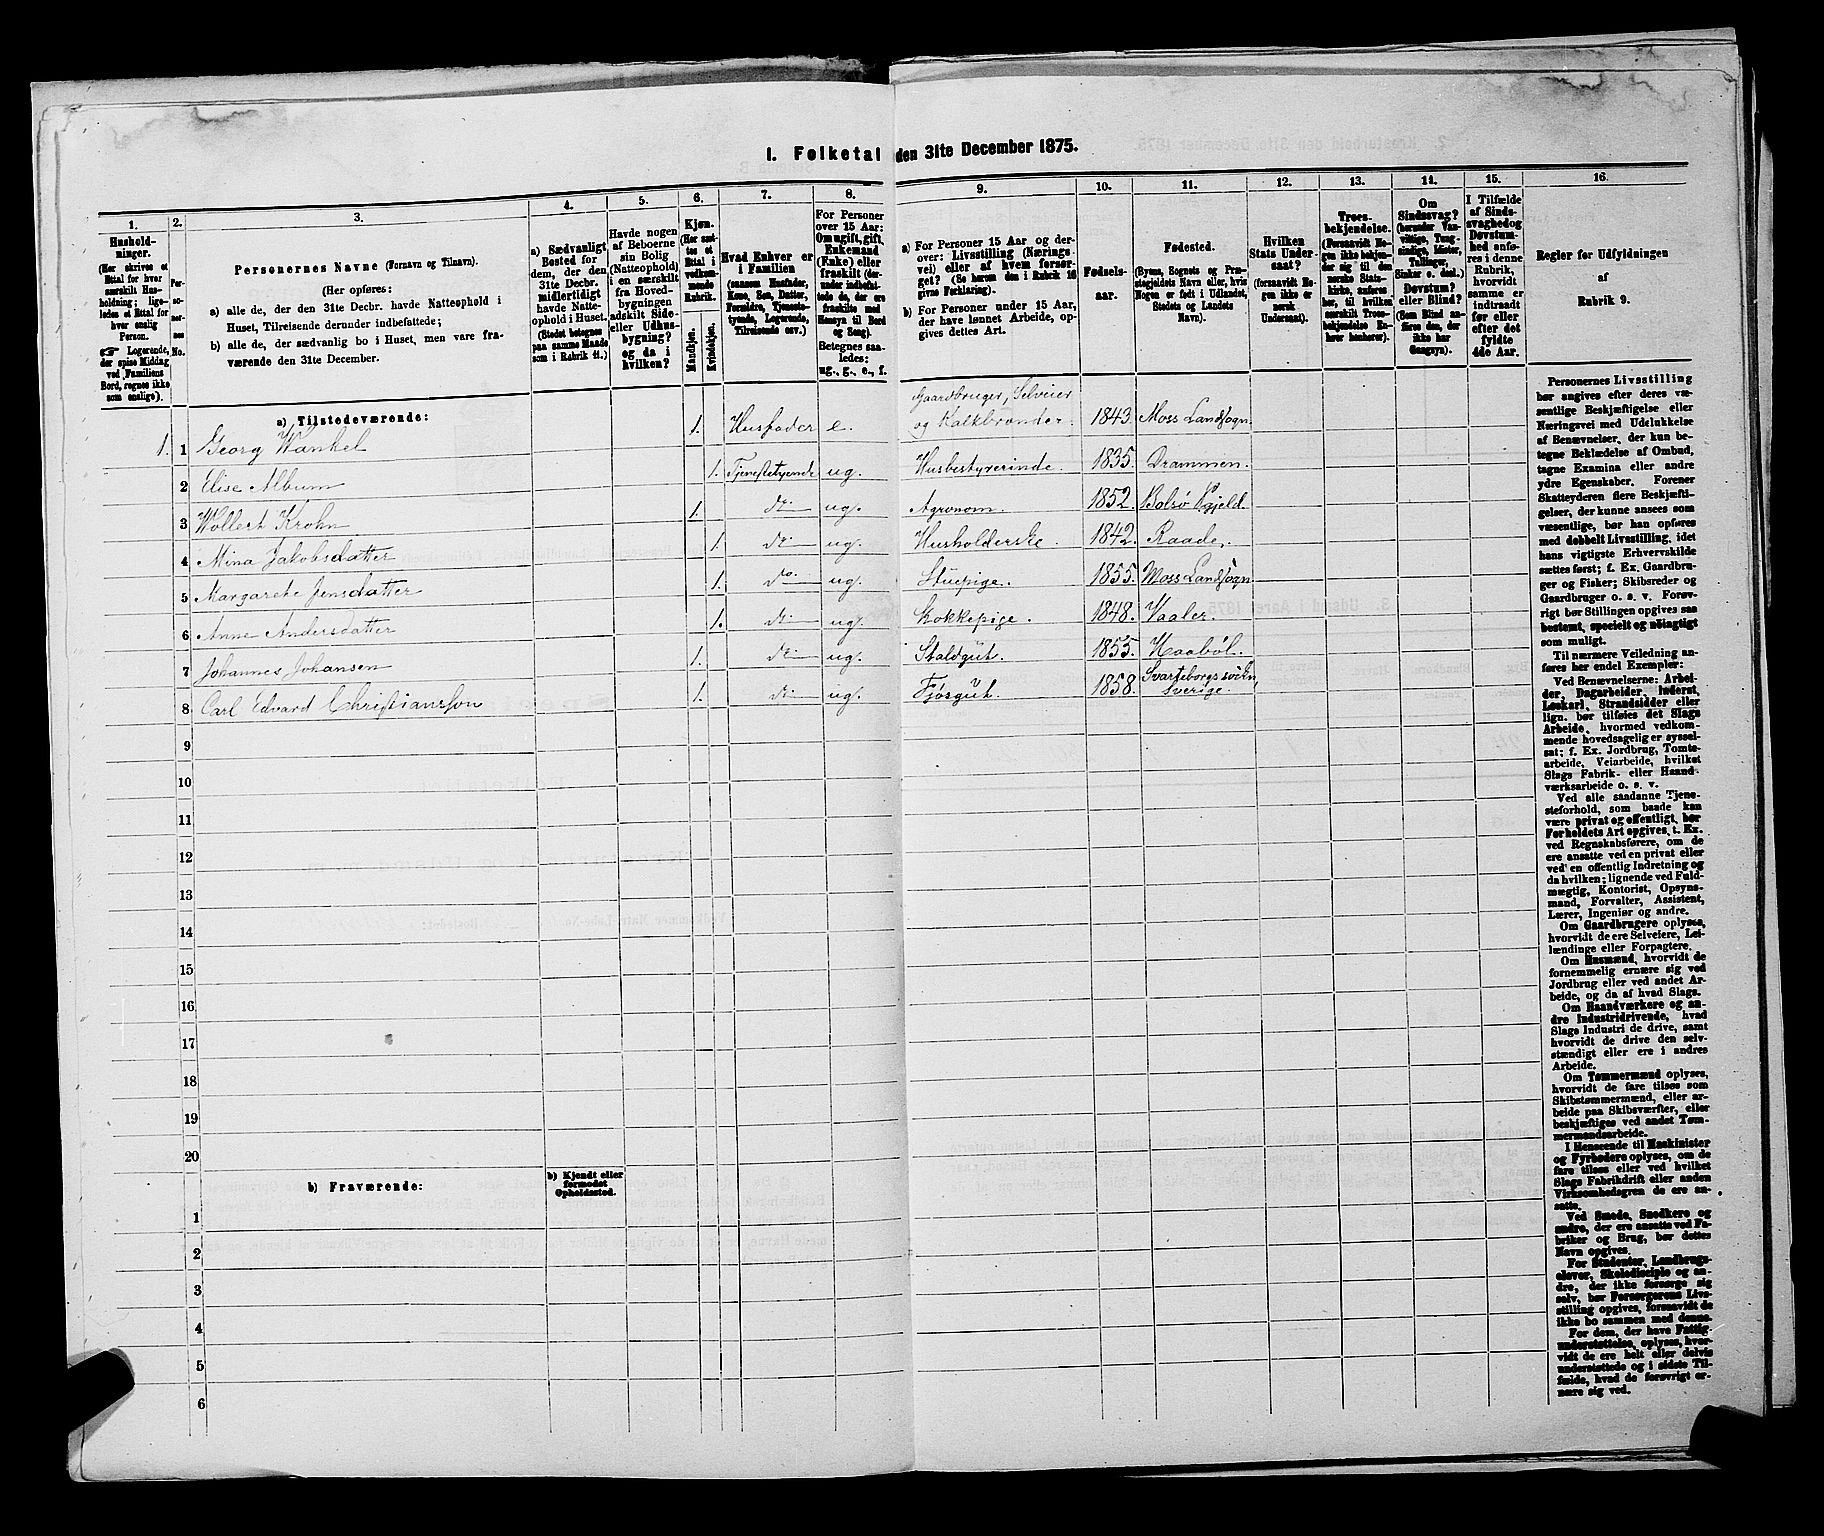 I. Folketal den 31te December 1875.
1.
2.
3.
4.
5.
6.
7.
8.
9.
10.
11.
12.
13.
14.
15.
16.
Husholdninger.
(Her skrives et Ettal for hver særskilt Husholdning; ligeledes et Ettal for hver enslig Person.
☞ Logerende, der spise Middag ved Familiens Bord, regnes ikke som enslige).
Personernes No.
Personernes Navne (Fornavn og Tilnavn).
(Her opføres:
a) alle de, der den 31te Decbr. havde Natteophold i Huset, Tilreisende derunder indbefattede;
b) alle de, der sædvanlig bo i Huset, men vare fraværende den 31te December.
a) Sædvanligt Bosted for dem, der den 31te Decbr. midlertidigt havde Natteophold i Huset.
(Stedet betegnes paa samme Maade som i Rubrik 11.)
Havde nogen af Beboerne sin Bolig (Natteophold) i en særskilt fra Hovedbygningen adskilt Side- eller Udhusbygning? og da i hvilken?
Kjøn.
(Her sættes et Ettal i vedkommende Rubrik.
Mandkjøn.
Kvindekjøn.
Hvad Enhver er i Familien
(saasom Husfader, Kone, Søn, Datter, Forældre, Tjenestetyende, Logerende, Tilreisende osv.)
For Personer over 15 Aar: Om ugift, gift, Enkemand (Enke) eller fraskilt (derunder indbefattede de, der ere fraskilte med Hensyn til Bord og Seng).
Betegnes saaledes: ug., g., e., f.
a) For Personer 15 Aar og derover: Livsstilling (Næringsvei) eller af hvem forsørget? (Se herom den i Rubrik 16 givne Forklaring).
b) For Personer under 15 Aar, der have lønnet Arbeide, opgives dettes Art.
Fødselsaar.
Fødested.
(Byens, Sognets og Præstegjeldets Navn eller, hvis Nogen er født i Udlandet, Stedets og Landets Navn).
Hvilken Stats Undersaat?
(forsaavidt Nogen ikke er norsk Undersaat).
Troesbekjendelse.
(Forsaavidt Nogen ikke bekjender sig til den norske Statskirke, anføres her, til hvilken særskilt Troesbekjendelse Enhver henhører).
Om Sindssvag? (herunder Vanvittige, Tungsindige, Idioter, Tullinger, Sinker o. desl.) Døvstum? eller Blind?
(Som Blind anføres den, der ikke har Gangsyn).
I Tilfælde af Sindssvaghed og Døvstumhed anføres i denne Rubrik, hvorvidt samme er indtraadt før eller efter det fyldte 4de Aar.
Regler for Udfyldningen af Rubrik 9.
a) Tilstedeværende:
1. 1 Georg Wankel 1. Husfader e. Gaardbruger, Selveier og Kalkbrænder. 1843. Moss Landsogn.
2 Elise Album 1. Tjenestetyende ug. Husbestyrerinde. 1835. Drammen.
3 Wollert Krohn 1. do ug. Agronom. 1852. Bolsø Pgjeld.
4 Mina Jakobsdatter 1. do ug. Husholderske. 1842. Raade.
5 Margarethe Jensdatter 1. do. ug. Stuepige. 1855. Moss Landsogn
6 Anne Andersdatter 1. do ug. Kokkepige. 1848. Vaaler.
7 Johannes Johansen 1. do ug. Staldgut. 1855. Haabøl.
8 Carl Edvard Christiansson 1. do ug. Fjøsgut. 1858. Svarteborgs sockn, Sverige.
9
10
11
12
13
14
15
16
17
18
19
20
b) Fraværende:
b) Kjendt eller formodet Opholdssted.
1
2
3
4
5
6
Personernes Livsstilling
bør angives efter deres væ-
sentlige Beskjæftigelse eller
Næringsvei med Udelukkelse
af Benævnelser, der kun be-
tegne Beklædelse af Ombud,
tagne Examina eller andre
ydre Egenskaber. Forener
Skatteyderen flere Beskjæfti-
gelser, der kunne ansees som
væsentlige, bør han opføres
med dobbelt Livsstilling, idet
hans vigtigste Erhvervskilde
sættes først; f. Ex. Gaardbru-
ger og Fisker; Skibsreder og
Gaardbruger o. s. v. Forøv-
rigt bør Stillingen opgives saa
bestemt, specielt og nøiagtigt
som muligt.
Til nærmere Veiledning an-
føres her endel Exempler:
Ved Benævnelserne: Arbei-
der, Dagarbeider, Inderst,
Løskarl, Strandsidder eller
lign. bør tilføies det Slags
Arbeide, hvormed vedkom-
mende hovedsagelig er syssel-
sat; f. Ex. Jordbrug, Tomte-
arbeide, Veiarbeide, hvilket
Slags Fabrik- eller Haand-
værksarbeide o. s. v.
Ved alle saadanne Tjene-
steforhold, som baade kan
være privat og offentligt, bør
Forholdets Art opgives, t. Ex.
ved Regnskabsførere, om de
ere ansatte ved en privat eller
ved en offentlig Indretning og
da hvilken; lignende ved Fuld-
mægtig, Kontorist, Opsyns-
mand, Forvalter, Assistent,
Lærer, Ingeniør og andre.
Om Gaardbrugere oplyses,
hvorvidt de ere Selveiere, Lei-
lændinge eller Forpagtere.
Om Husmænd, hvorvidt de
fornemmelig ernære sig ved
Jordbrug eller ved andet Ar-
beide, og da af hvad Slags.
Om Haandværkere og an-
dre Industridrivende, hvad
Slags Industri de drive, samt
hvorvidt de drive den selv-
stændigt eller ere i andres
Arbeide.
Om Tømmermænd oplyses,
hvorvidt de fare tilsøs som
Skibstømmermænd, eller ar-
beide paa Skibsværfter, eller
beskjæftiges ved andet Tøm-
mermandsarbeide.
I Henseende til Maskinister
og Fyrbødere oplyses, om de
fare tilsøs eller ved hvilket
Slags Fabrikdrift eller anden
Virksomhedsgren de ere an-
satte.
Ved Smede, Snedkere og
andre, der ere ansatte ved Fa-
briker og Brug, bør dettes
Navn opgives.
For Studenter, Landbrugs-
elever, Skoledisciple og an-
dre, der ikke forsørge sig
selv, bør Forsørgerens Livs-
stilling opgives, forsaavidt de
ikke bo sammen med denne.
For dem, der have Fattig-
understøttelse, oplyses, hvor-
vidt de ere helt eller delvis
understøttede og i sidste Til-
fælde, hvad de forøvrigt er-
nære sig ved.